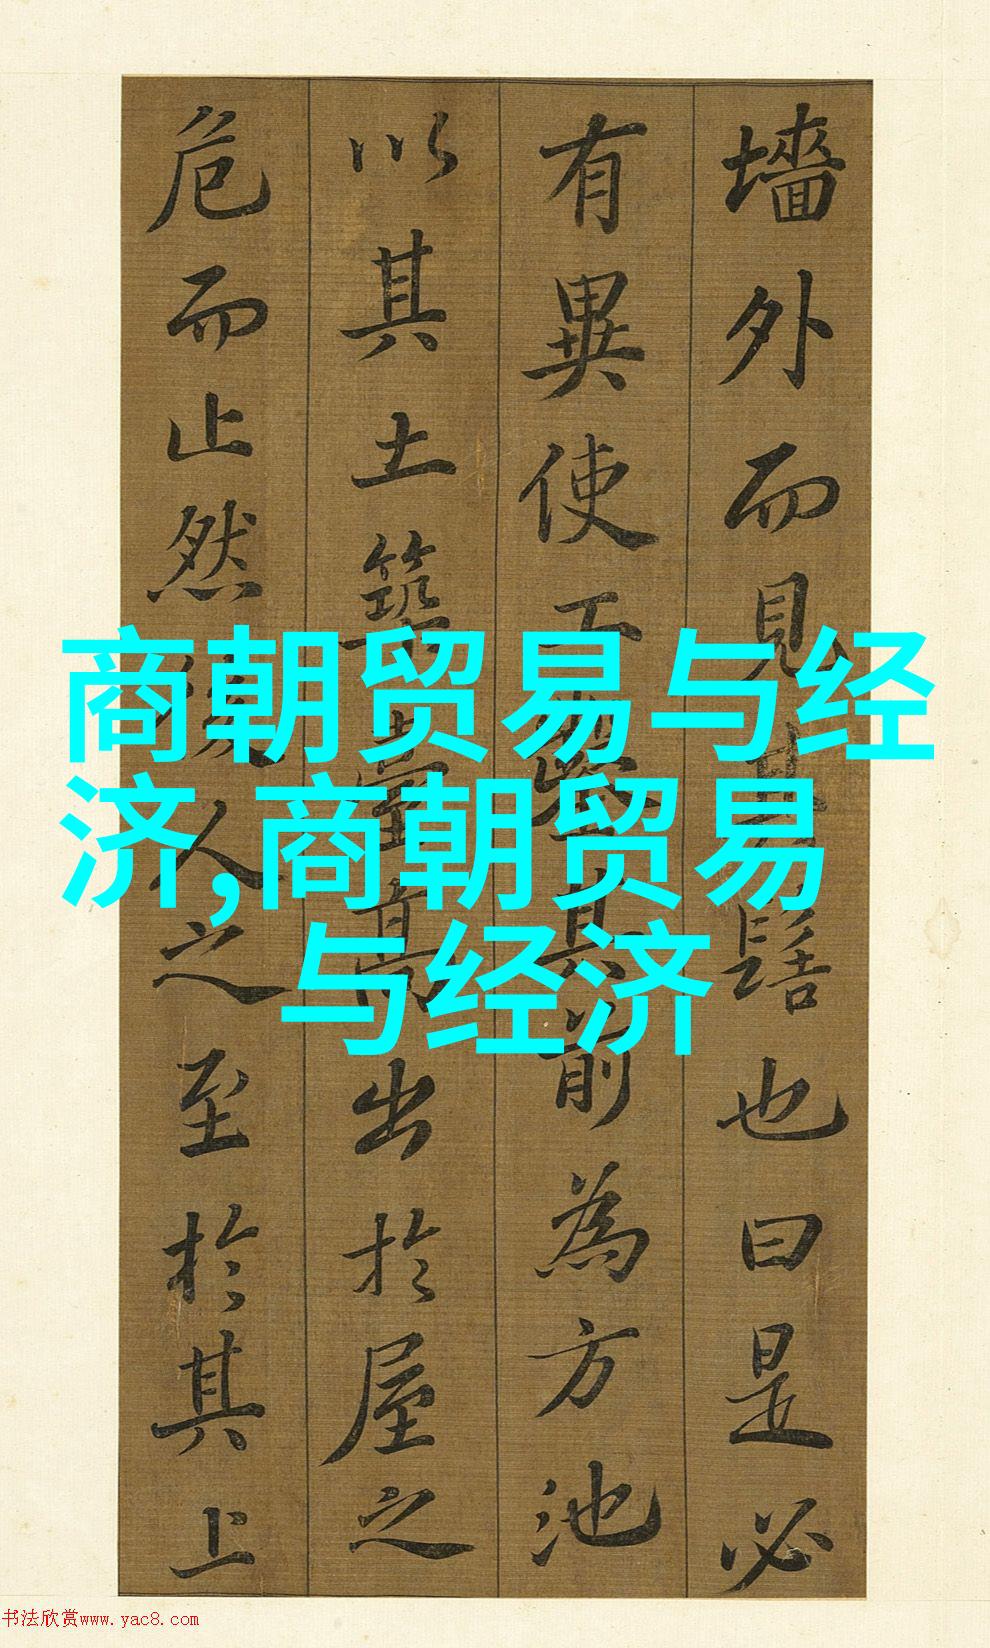 墻外而見其髻也曰是必
有異使工鑿其前為方池
以其土築臺高出於屋之
危而止然後人之至於其上
商朝贸易与经
济,商朝贸易
与经济
书法欣赏www.yac8.com